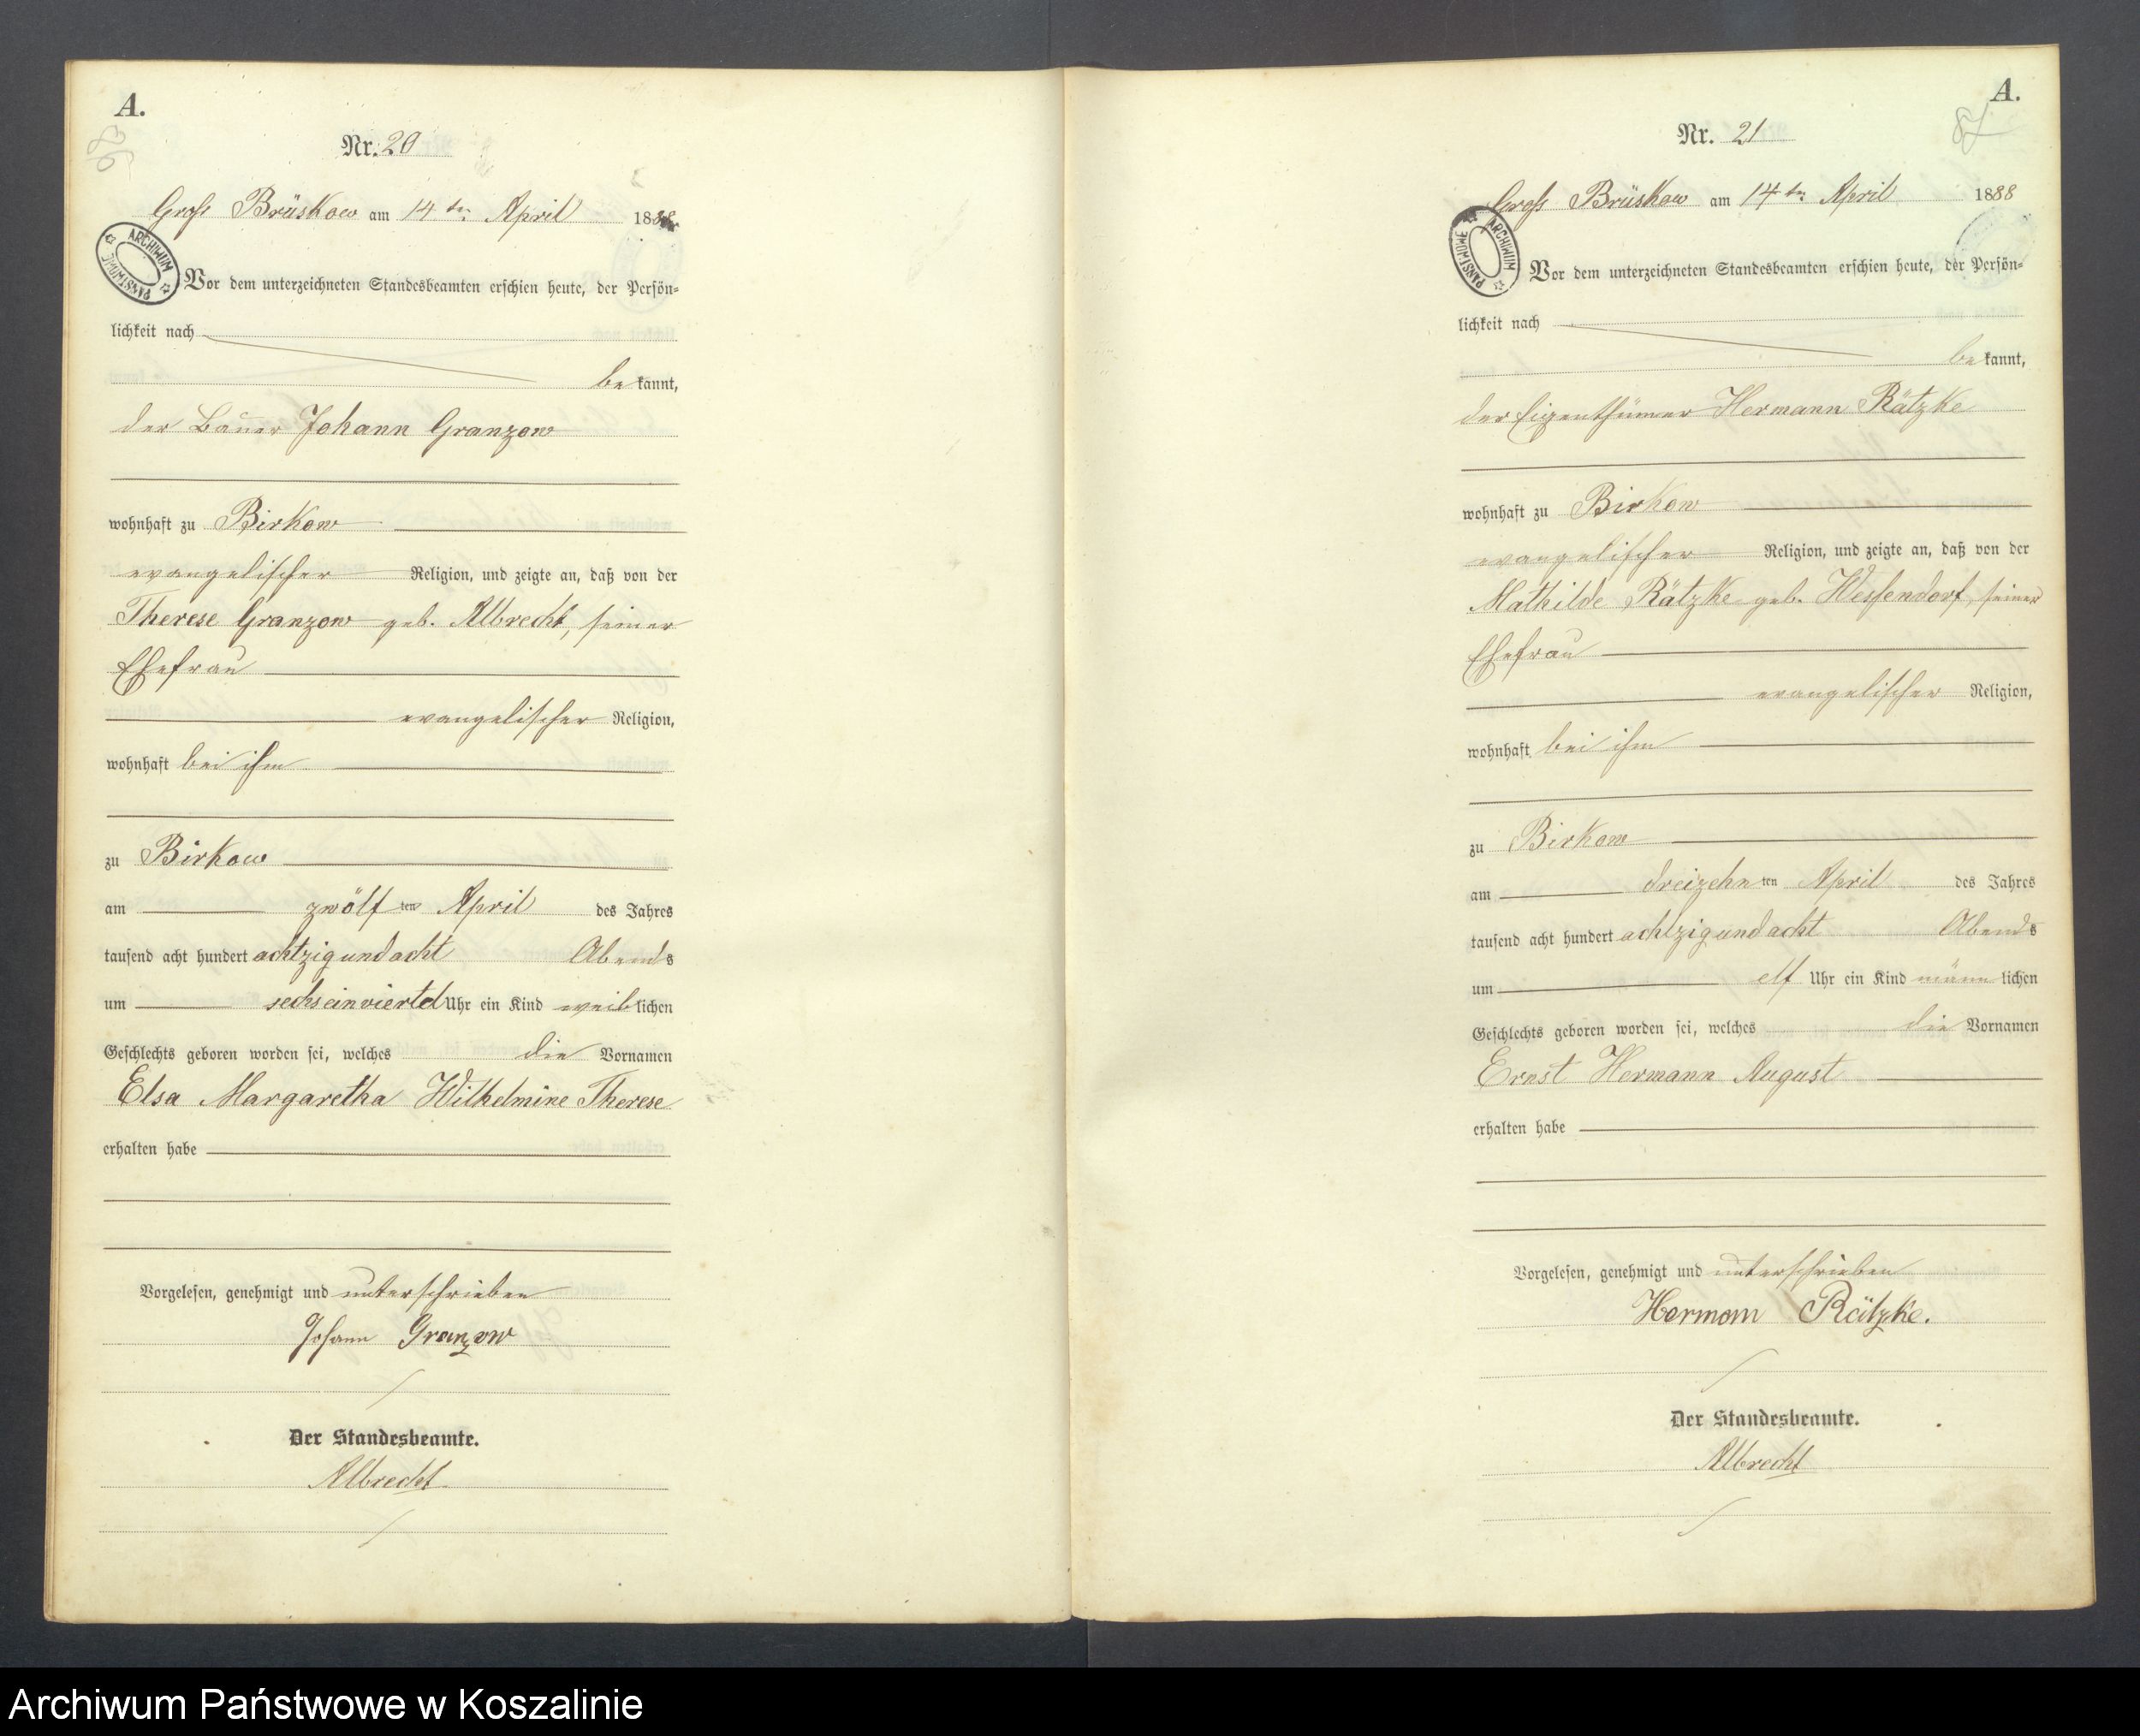 A.
Nr. 20
Groß Brüskow am 14ten April 1888
ARCHIWUM PANSTWOWE
Vor dem unterzeichneten Standesbeamten erschien heute, der Persön=
lichkeit nach
be kannt,
der Bauer Johann Granzow
wohnhaft zu Birkow
evangelischer Religion, und zeigte an, daß von der
Therese Granzow geb. Albrecht, seiner
Ehefrau
evangelischer Religion,
wohnhaft bei ihm
zu Birkow
am zwölf ten April des Jahres
tausend acht hundert achtzig und acht Abends
um sechseinviertel Uhr ein Kind weib lichen
Geschlechts geboren worden sei, welches die Vornamen
Elsa Margaretha Wilhelmine Therese
erhalten habe
Vorgelesen, genehmigt und unterschrieben
Johann Granzow
Der Standesbeamte.
Albrecht
A.
87
Nr. 21
Groß Brüskow am 14ten April 1888
ARCHIWUM PANSTWOWE
Vor dem unterzeichneten Standesbeamten erschien heute, der Persön=
lichkeit nach
be kannt,
der Eigenthümer Hermann Rätzke
wohnhaft zu Birkow
evangelischer Religion, und zeigte an, daß von der
Mathilde Rätzke geb. Wessendorf, seiner
Ehefrau
evangelischer Religion,
wohnhaft bei ihm
zu Birkow
am dreizehn ten April des Jahres
tausend acht hundert achtzig und acht Abends
um elf Uhr ein Kind männ lichen
Geschlechts geboren worden sei, welches die Vornamen
Ernst Hermann August
erhalten habe
Vorgelesen, genehmigt und unterschrieben
Hermann Rätzke.
Der Standesbeamte.
Albrecht
Archiwum Państwowe w Koszalinie